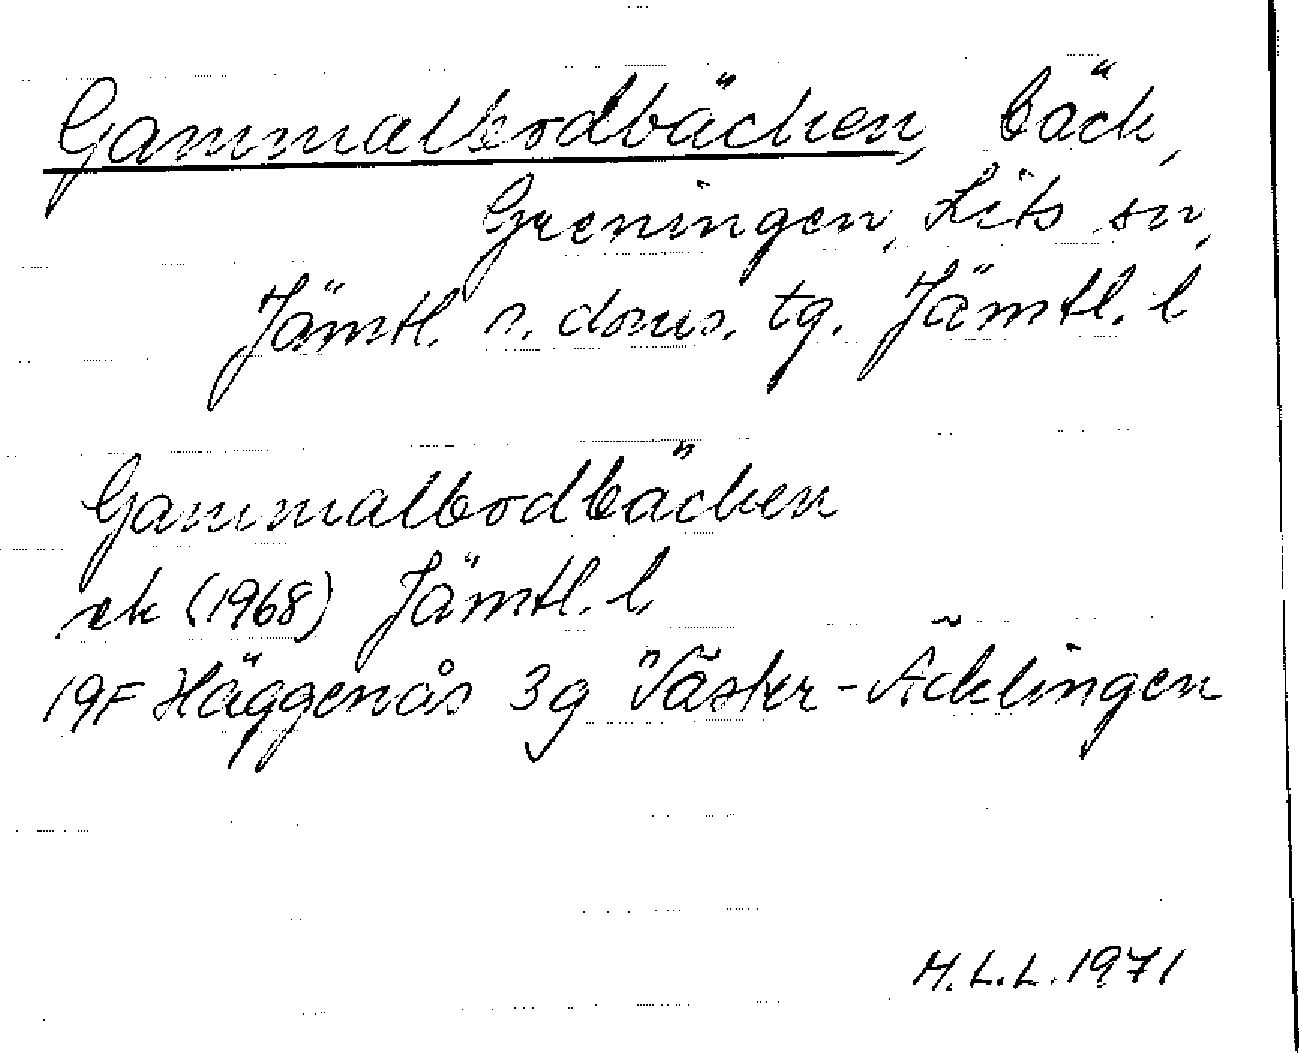 Gammalbodbäcken, bäck,
Greningen, Lits sn,
Jämtl. n. doms. tg. Jämtl. l
Gammalbodbäcken
ek (1968) Jämtl. l.
19F Häggenås 3g Väster-Äcklingen
H.L.L. 1971